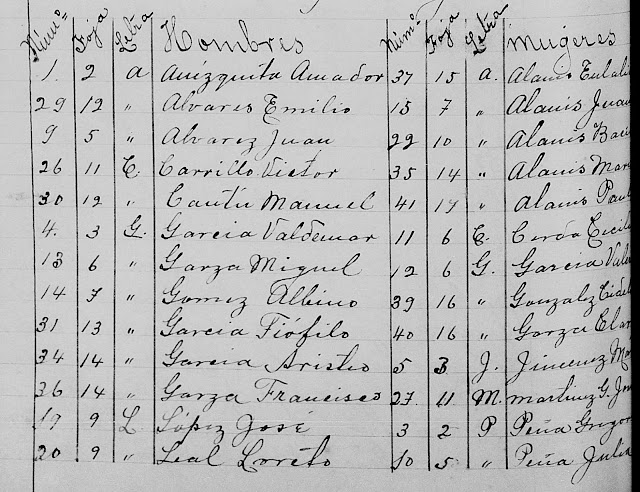 Núm.º Foja Letra Hombres Núm.º Foja Letra Mugeres
1. 2 A Amézquita Amador 37 15 A. Alanis Eulali
29 12 " Alvares Emilio 15 7 " Alanis Juan
9 5 " Alvarez Juan 22 10 " Alanis
26 11 C. Carrillo Victor 35 14 " Alanis Mar
30 12 " Cantú Manuel 41 17 " Alanis Paul
4. 3 G. Garcia Valdemar 11 6 C. Cerda Cecil
13 6 " Garza Miguel 12 6 G. Garcia Vale
14 7 " Gomez Albino 39 16 " Gonzalez
31 13 " Garcia Tiófilo 40 16 " Garza Elar
34 14 " Garcia Aristeo 5 3 J. Jimenez Ma
36 14 " Garza Francisco 27 11 M. Martinez G.
19 9 L. López José 3 2 P Peña Grigor
20 9 " Leal Loreto 10 5 " Peña Julia